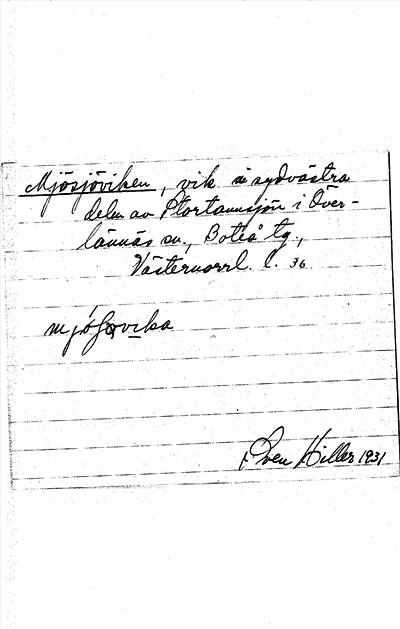 Mjösjöviken, vik i sydvästra
delen av Stortannsjön i Över-
lännäs sn., Boteå tg.,
Västernorrl. l. 36
Sven Hiller 1931